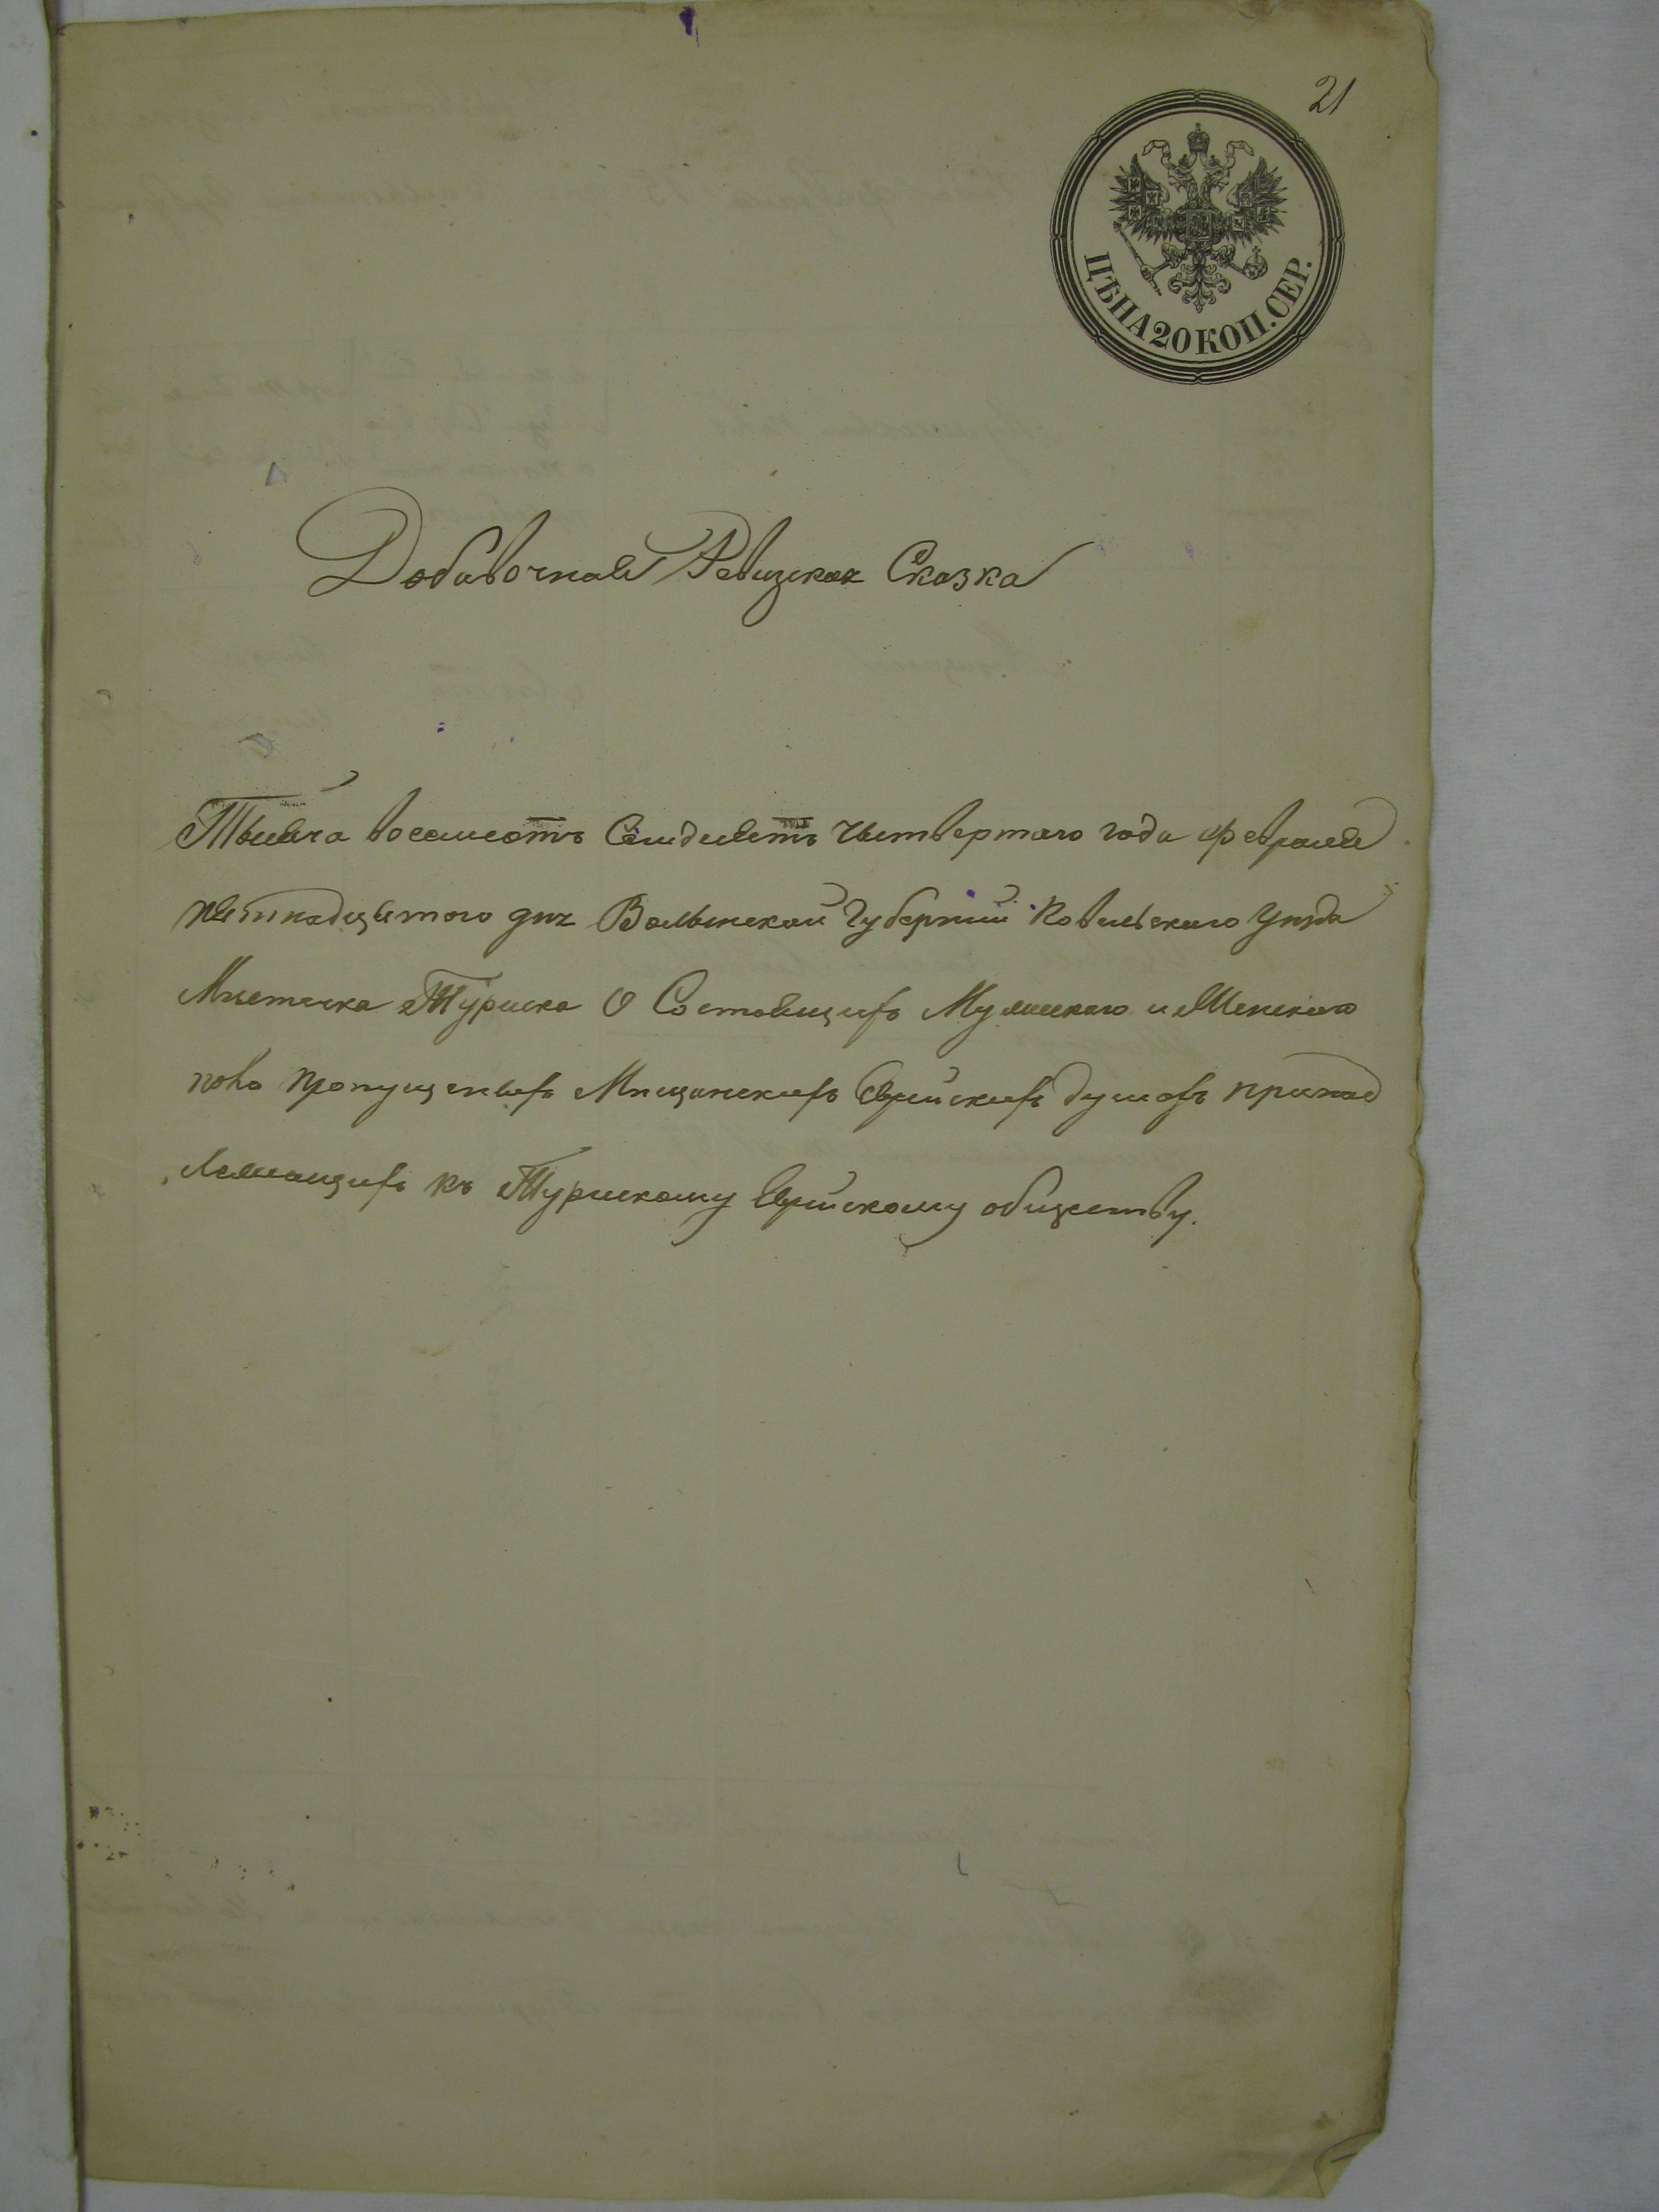 21
ЦѢНА 20 КОП. СЕР.
Добавочная Ревизская Сказка
Тысяча восемсотъ Семдесятъ Четвертаго года Февраля
пятнадцатого дня Волынской Губерніи Ковельскаго Уѣзда
Мѣстечка Туриска О Состоящихъ Мужескаго и Женскаго
пола пропущеныхъ Мѣщанскихъ Еврейскихъ душахъ принад
лежащихъ къ Турискому Еврейскому обществу.